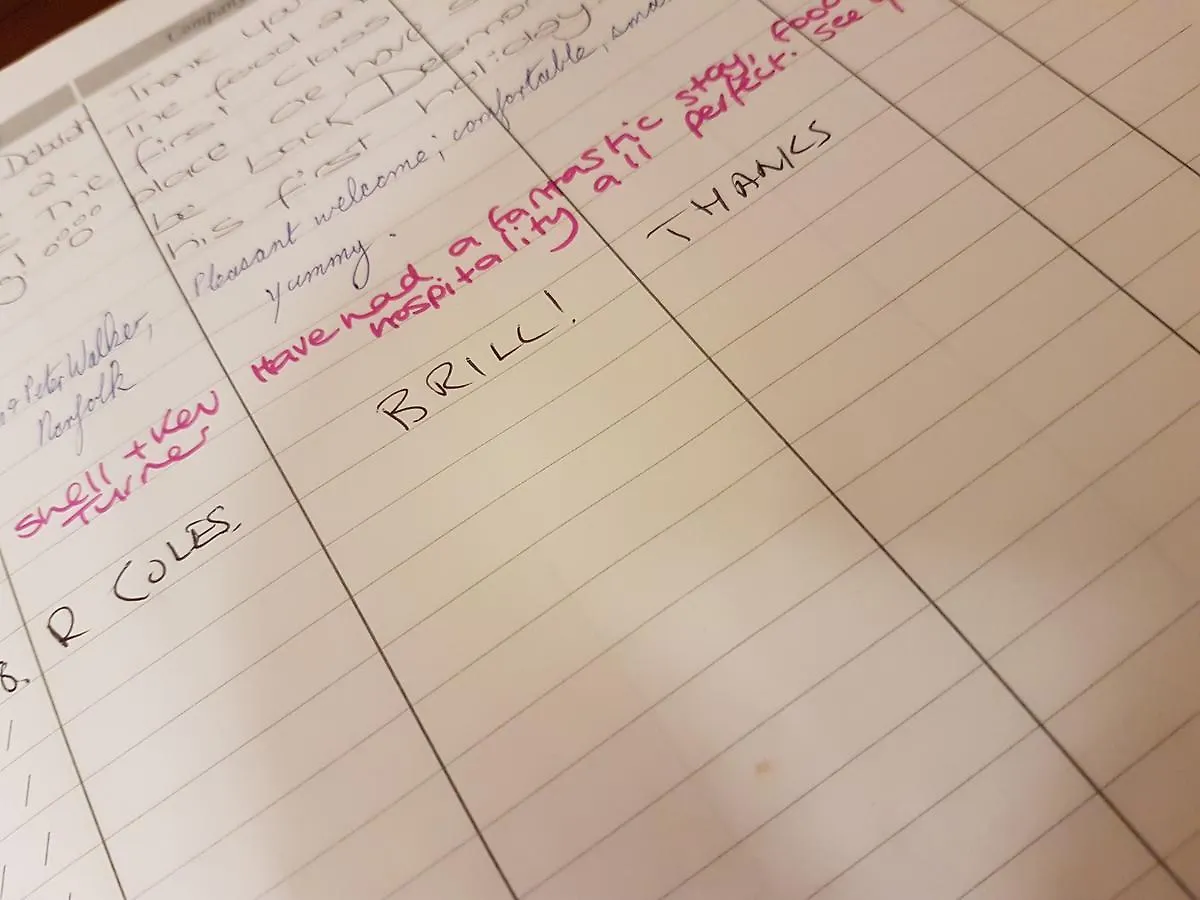 Company
Thank you
The food a
Debud first class
a. place we have s
The back Desmon
be first holiday.
his
Pleasant welcome; comfortable, sma
yummy.
Peter Walker,
Norfolk
Have had a fantastic stay, food
hospitality all perfect. see y
shell + Kev
Turner
BRILL! THANKS
R COLES.
8.